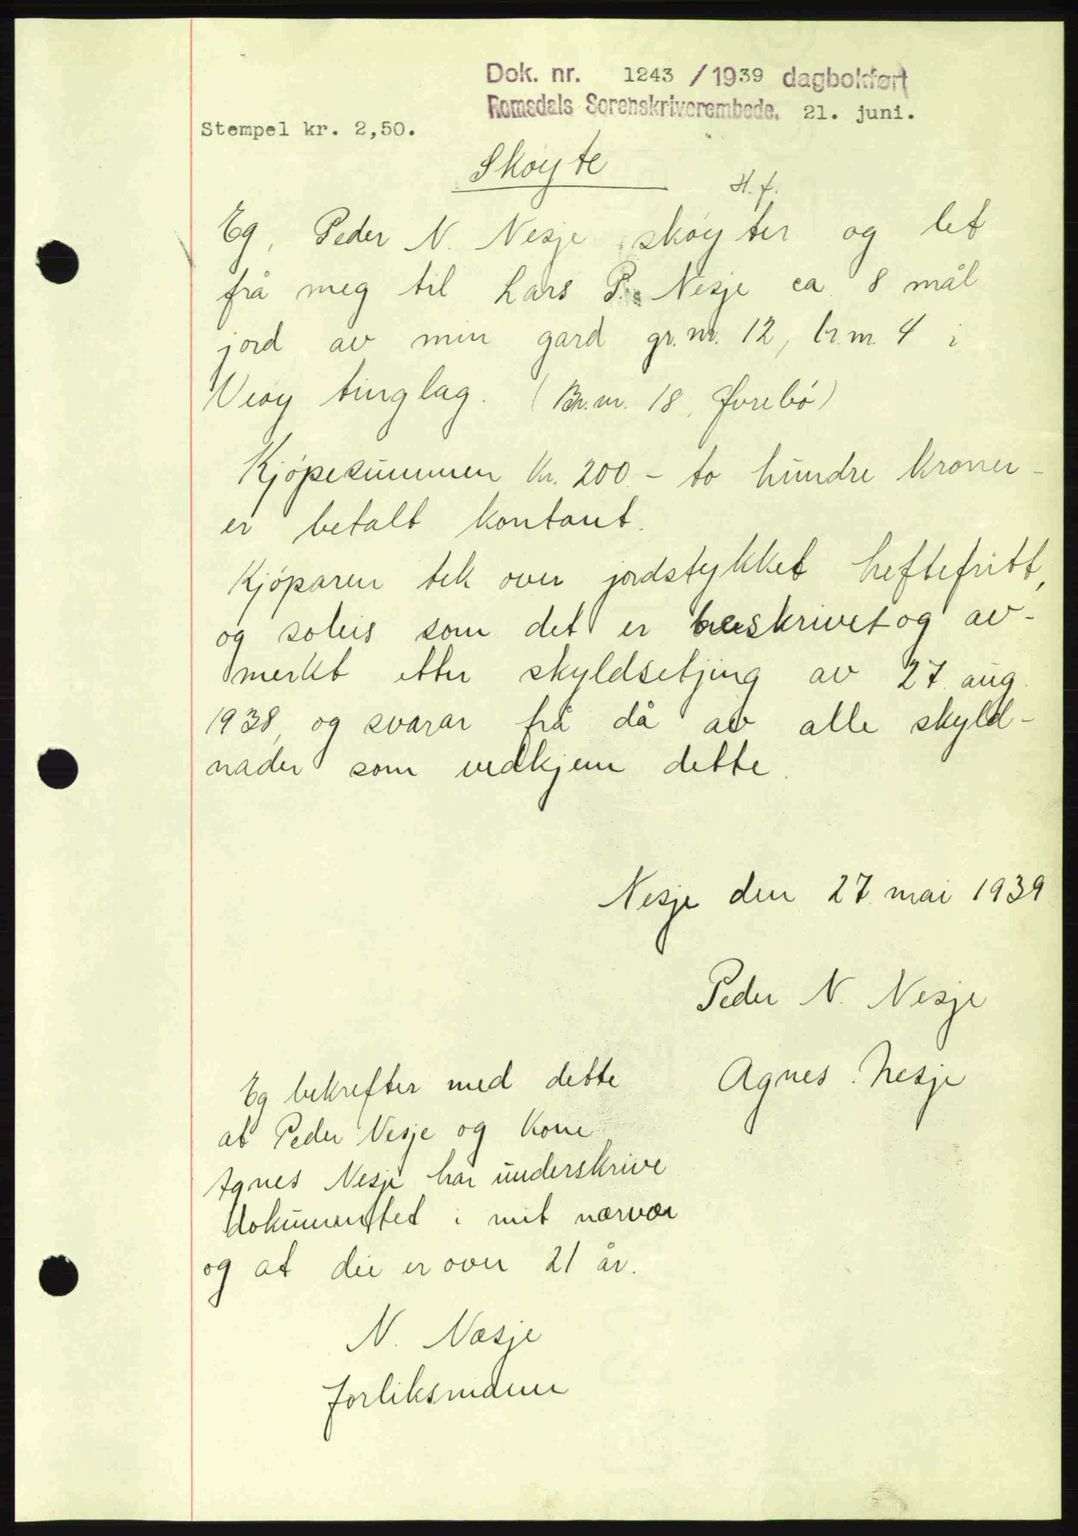 Dok. nr. 1243 /1939 dagbokført
Romsdals Sorenskriverembede. 21. juni.
Stempel kr. 2,50.
Skøyte
H. f.
Eg, Peder N. Nesje skøyter og let
frå meg til Lars P. Nesje ca 8 mål
jord av min gard gr. nr. 12, br. nr. 4 i
Veøy tinglag. (Br. nr. 18, Øvrebø)
Kjøpesummen kr. 200 - to hundre kroner -
er betalt kontant.
Kjøparen tek over jordstykket heftefritt,
og soleis som det er beskrivet og av-
merkt etter skyldsetjing av 27. aug.
1938, og svarar frå då av alle skyld-
nader som vedkjem dette.
Nesje den 27. mai 1939
Peder N. Nesje
Agnes Nesje
Eg bekrefter med dette
at Peder Nesje og kone
Agnes Nesje har underskrive
dokumentet i mit nærvær
og at dei er over 21 år.
N. Næsje
forliksmann